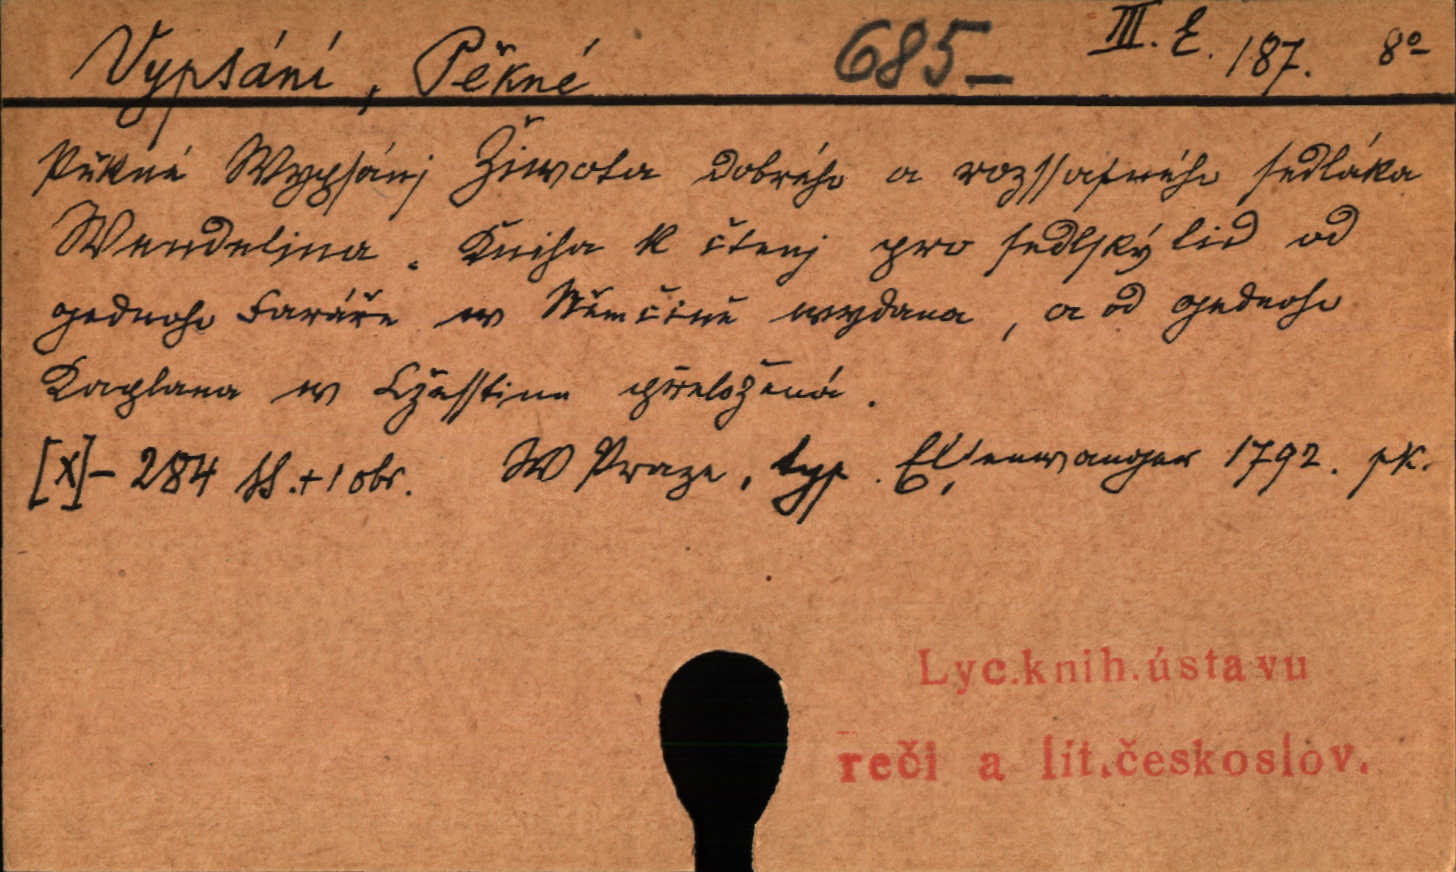 Vypsání, Pěkné 685- III. E. 187. 8º
Pěkné Wypsánj Žiwota dobrého a rozssafného sedláka
Wendelina. Kniha k čtenj pro sedlský lid od
gednoho Faráře w Němčině wydana, a od gednoho
Kaplana w Czesstinu přeložená.
[X]- 284 SS.+1 obr. W Praze, typ. Elsenwanger 1792. pk.
Lyc.knih.ústavu
řeči a lit.českoslov.